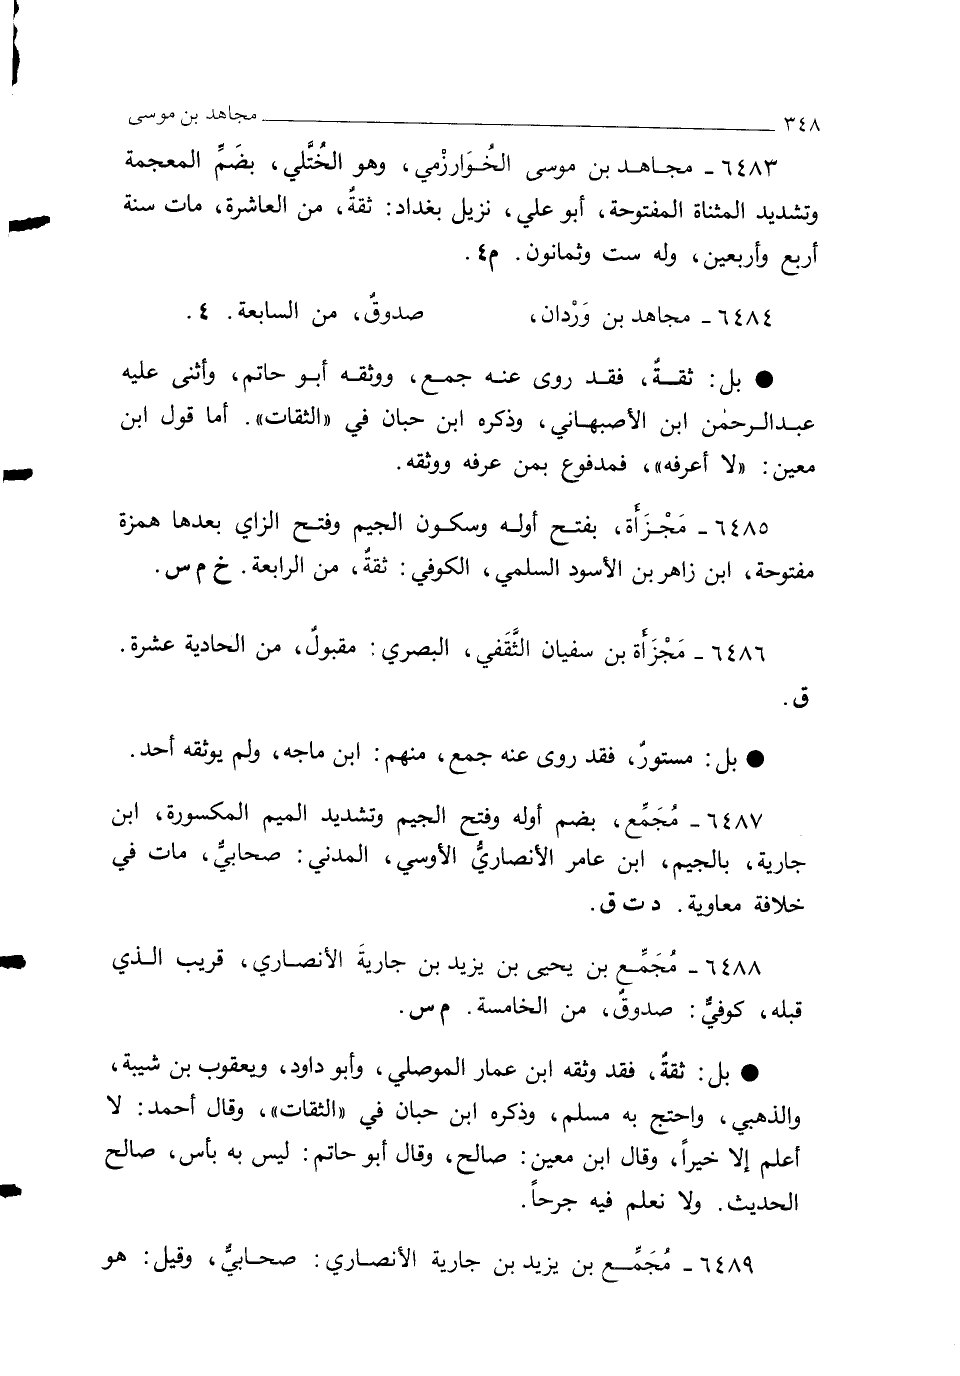 ٣٤٨ مجاهد بن موسى
٦٤٨٣ ـ مجـاهـد بن موسى الخُـوَارزْمي، وهو الخُتَّلي، بضَمِّ المعجمة
وتشديد المثناة المفتوحة، أبو علي، نزيل بغداد: ثقةٌ، من العاشرة، مات سنة
أربع وأربعين، وله ست وثمانون. م٤.
٦٤٨٤ ـ مجاهد بن وَرْدان، صدوقٌ، من السابعة. ٤.
● بل: ثقـةٌ، فقـد روى عنـه جمـع، ووثقـه أبـو حاتم، وأثنى عليه
عبـدالـرحمٰن ابن الأصبهـاني، وذكره ابن حبان في «الثقات». أما قول ابن
معين: «لا أعرفه»، فمدفوع بمن عرفه ووثقه.
٦٤٨٥ ـ مَجْـزَأَة، بفتـح أولـه وسكـون الجيم وفتـح الزاي بعدها همزة
مفتوحة، ابن زاهر بن الأسود السلمي، الكوفي: ثقةٌ، من الرابعة. خ م س.
٦٤٨٦ ـ مَجْزَأَة بن سفيان الثَّقَفي، البصري: مقبولٌ، من الحادية عشرة.
ق.
● بل: مستورٌ، فقد روى عنه جمع، منهم: ابن ماجه، ولم يوثقه أحد.
٦٤٨٧ ـ مُجَمِّع، بضم أوله وفتح الجيم وتشديد الميم المكسورة، ابن
جارية، بالجيم، ابن عامر الأنصاريُّ الأوسي، المدني: صحابيٌّ، مات في
خلافة معاوية. د ت ق.
٦٤٨٨ ـ مُجَمِّـع بن يحيى بن يزيد بن جاريةَ الأنصـاري، قريب الـذي
قبله، كوفيٌّ: صدوقٌ، من الخامسة. م س.
● بل: ثقةٌ، فقد وثقه ابن عمار الموصلي، وأبو داود، ويعقوب بن شيبة،
والذهبي، واحتج به مسلم، وذكره ابن حبان في «الثقات»، وقال أحمد: لا
أعلم إلا خيراً، وقال ابن معين: صالح، وقال أبو حاتم: ليس به بأس، صالح
الحديث. ولا نعلم فيه جرحاً.
٦٤٨٩ ـ مُجَمِّـع بن يزيد بن جارية الأنصـاري: صحـابيٌّ، وقيل: هو